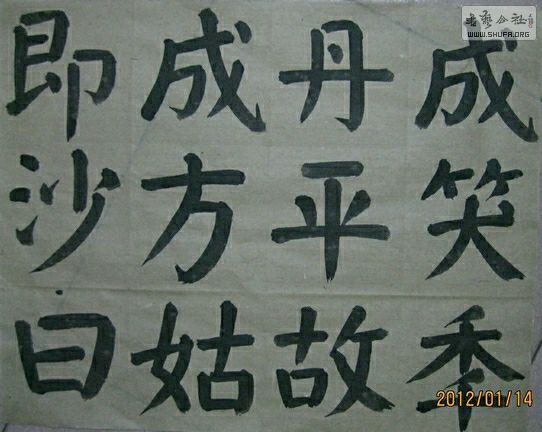 成笑季
丹平故
成方姑
即沙曰
书艺公社
WWW.SHUFA.ORG
2012/01/14